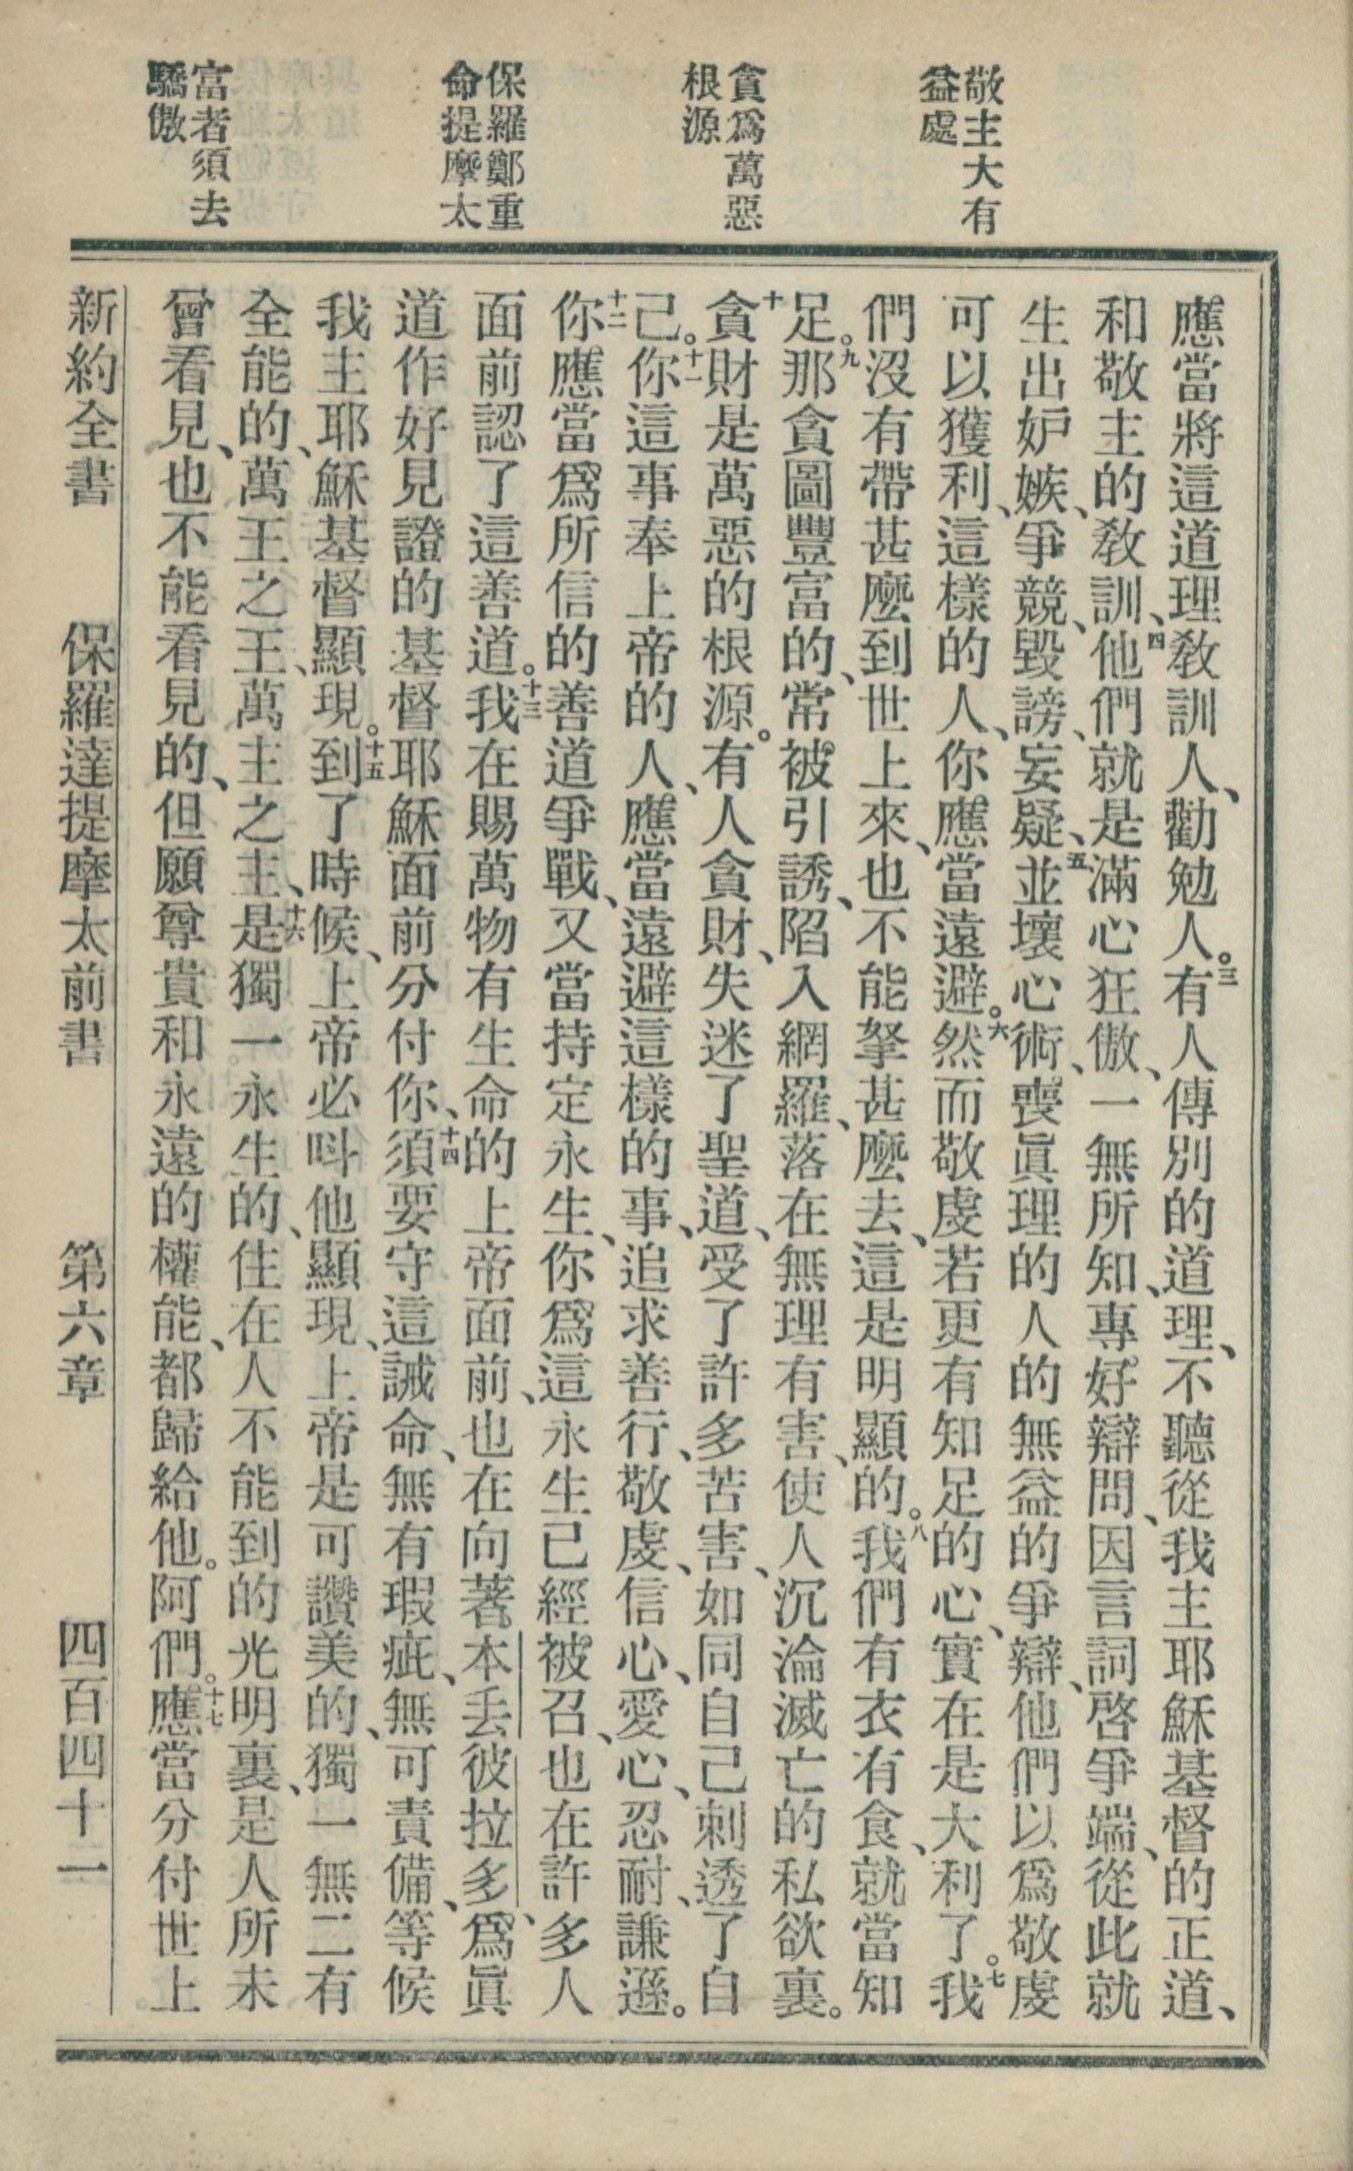 敬主大有
益處
貪爲萬惡
根源
保羅鄭重
命提摩太
富者須去
驕傲
應當將這道理敎訓人、勸勉人。三有人傳別的道理、不聽從我主耶穌基督的正道、
和敬主的敎訓、四他們就是滿心狂傲、一無所知、專好辯問、因言詞啓爭端、從此就
生出妒嫉、爭競、毀謗、妄疑、五並壞心術、喪眞理的人的無益的爭辯、他們以爲敬虔
可以獲利、這樣的人、你應當遠避。六然而敬虔若更有知足的心、實在是大利了。七我
們沒有帶甚麽到世上來、也不能拏甚麽去、這是明顯的。八我們有衣有食、就當知
足。九那貪圖豐富的、常被引誘、陷入網羅、落在無理有害、使人沉淪滅亡的私欲裏。
十貪財是萬惡的根源。有人貪財、失迷了聖道、受了許多苦害、如同自己刺透了自
己。十一你這事奉上帝的人、應當遠避這樣的事、追求善行、敬虔、信心、愛心、忍耐、謙遜。
十二你應當爲所信的善道爭戰、又當持定永生、你爲這永生已經被召、也在許多人
面前認了這善道。十三我在賜萬物有生命的上帝面前、也在向著本丢彼拉多、爲眞
道作好見證的基督耶穌面前分付你、十四須要守這誡命、無有瑕疵、無可責備、等候
我主耶穌基督顯現。十五到了時候、上帝必呌他顯現、上帝是可讚美的、獨一無二有
全能的、萬王之王、萬主之主、十六是獨一永生的、住在人不能到的光明裏、是人所未
曾看見、也不能看見的、但願尊貴和永遠的權能、都歸給他。阿們。十七應當分付世上
新約全書 保羅達提摩太前書 第六章 四百四十一